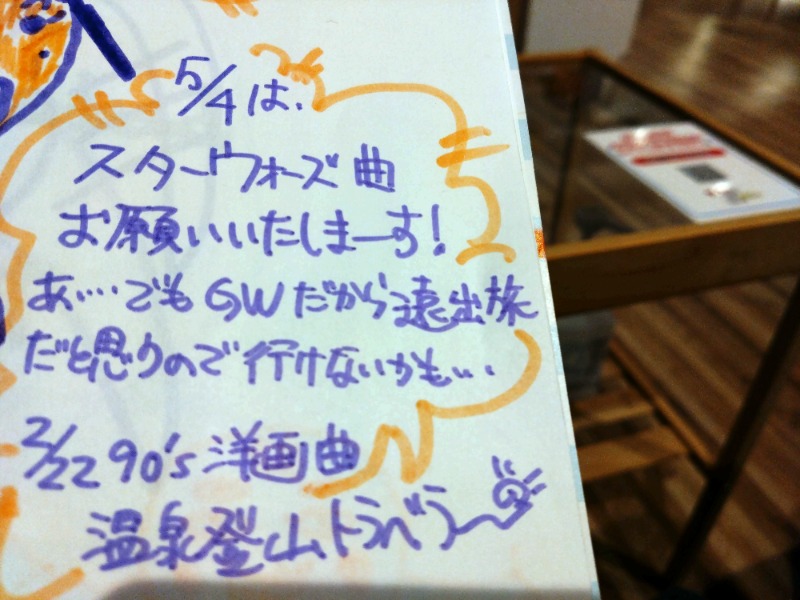 5/4は、
スターウォーズ曲
お願いいたしまーす!
あ…でもGWだから遠出旅
だと思うので行けないかも…
2/22 90's 洋画曲
温泉登山トラベラー